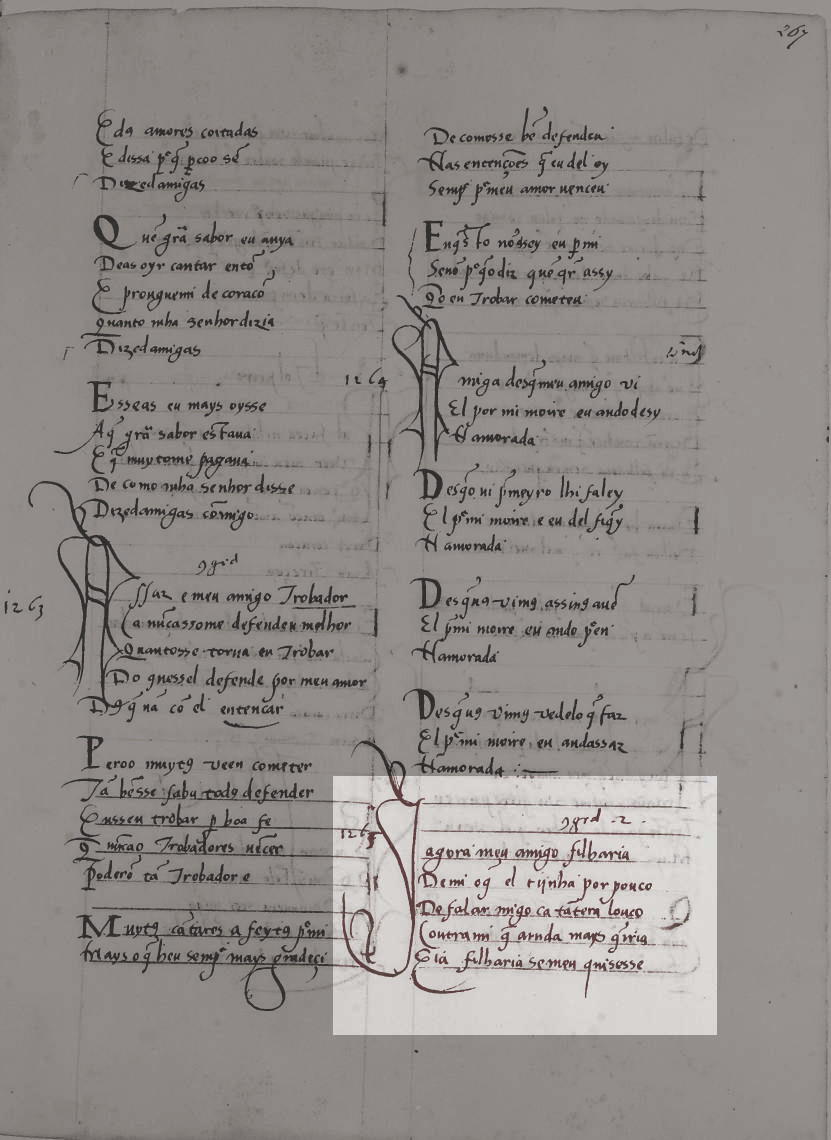 267
E das amores coitadas
E dissa p̃q̃ p̃coo sẽ
Dizedamigas
Que grã sabor eu auya
Deas oyr cantar entõ
E prouguemi de coraçõ
quanto mha senhor dizia
Dizedamigas
Esseas eu mays oysse
Aq̃ grã sabor estaua
E q̃ muytome pagaua
De como mha senhor disse
Dizedamigas cõmigo
1263
9grd
Assaz e meu amigo Trobador
Ca nũcassome defendeu melhor
Quantosse torna en Trobar
Do quessel defende por meu amor
D9 q̃ uã cõ el entençar
Peroo muyt9 veen cometer
Tã bẽsse sabu tod9 defender
En seu trobar p boa fe
Q̃ nũcao Trobadores uẽcer
Poderõ tã Trobador e
Muyt9 cãtares a feyt9 p̃mi
Mays o q̃ lheu semp̃ mays gradeçi
De comosse bẽ defendeu
Nas entenções q̃ eu del oy
Semp̃ p̃meu amor uenceu
E nõ ssey eu p mi
Senõ p̃q̃o diz quẽ q̃r assy
Qo eu Trobar cometeu
1264
Amiga desq̃meu amigo vi
El por mi moire eu ando desy
Namorada
Desq̃o ui p̃meyro lhi faley
El p̃mi moire e eu del fiq̃y
Namorada
Desq̃n9 vim9 assin9 auẽ
El p̃mi moire eu ando p̃en
Namorada
Desq̃n9 vim9 vedelo q̃ faz
El p̃mi moire eu andassaz
Namorada
1265
9grd · 2 ·
Ia agora meu amigo filharia
De mi oq̃ el tijnha por pouco
De falar migo ca tãtera louco
Contra mi q̃ ainda mays q̃ria
E ia filharia se meu quisesse